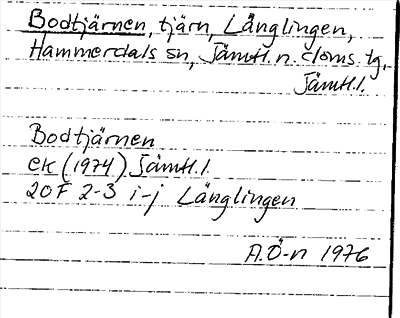 Bodtjärnen, tjärn, Långlingen,
Hammerdals sn, Jämtl. n. doms. tg,
Jämtl. l.
Bodtjärnen
ek (1974) Jämtl. l.
20F 2-3 i-j Långlingen
A.Ö-n 1976